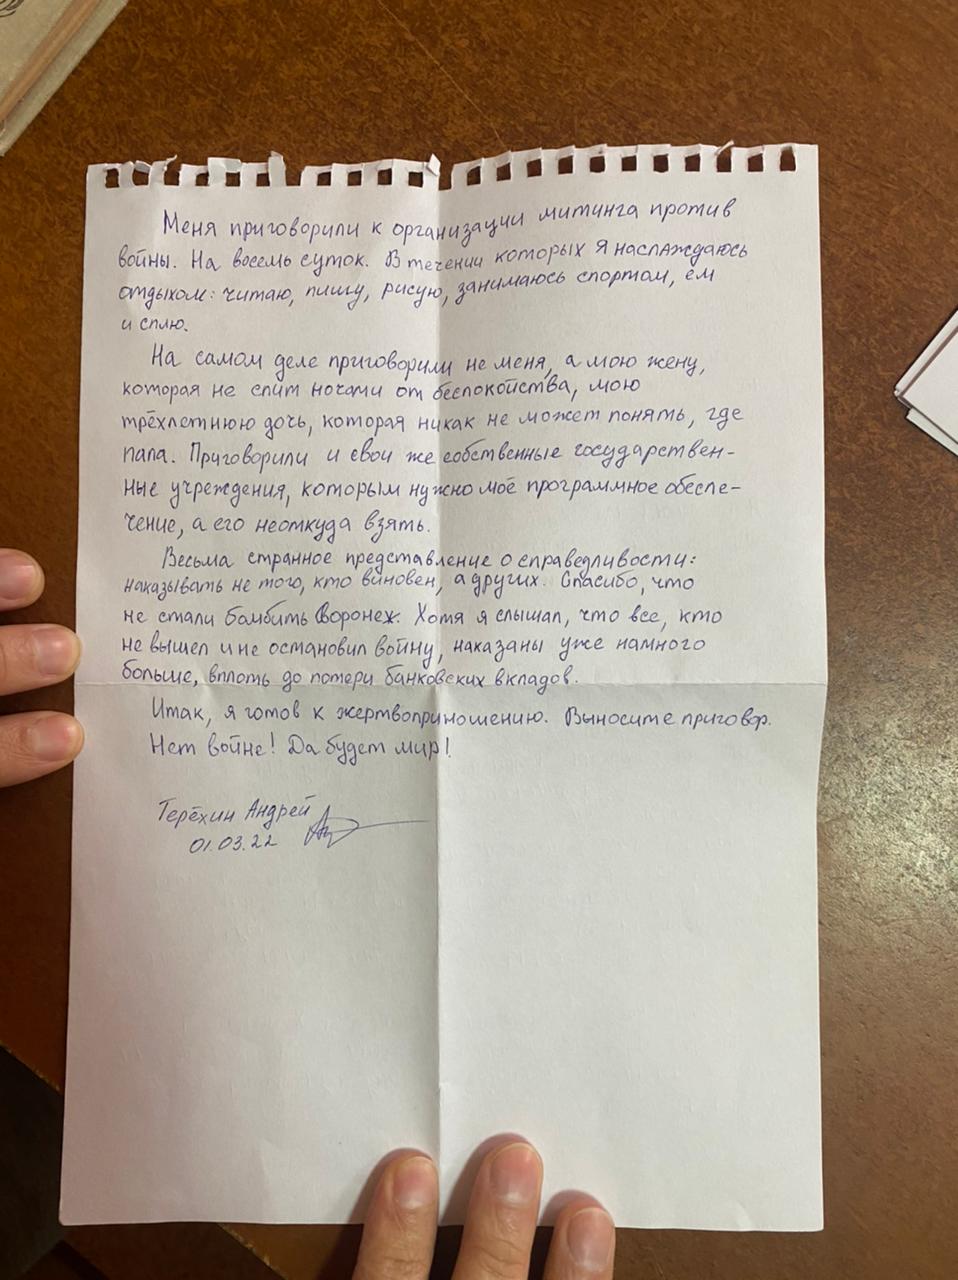 Меня приговорили к организации митинга против
войны. На восемь суток. В течении которых я наслаждаюсь
отдыхом: читаю, пишу, рисую, занимаюсь спортом, ем
и сплю.
На самом деле приговорили не меня, а мою жену,
которая не спит ночами от беспокойства, мою
трёхлетнюю дочь, которая никак не может понять, где
папа. Приговорили и свои же собственные государствен-
ные учреждения, которым нужно моё программное обеспе-
чение, а его неоткуда взять.
Весьма странное представление о справедливости:
наказывать не того, кто виновен, а других. Спасибо, что
не стали бомбить Воронеж. Хотя я слышал, что все, кто
не вышел и не остановил войну, наказаны уже намного
больше, вплоть до потери банковских вкладов.
Итак, я готов к жертвоприношению. Выносите приговор.
Нет войне! Да будет мир!
Терёхин Андрей
01.03.22